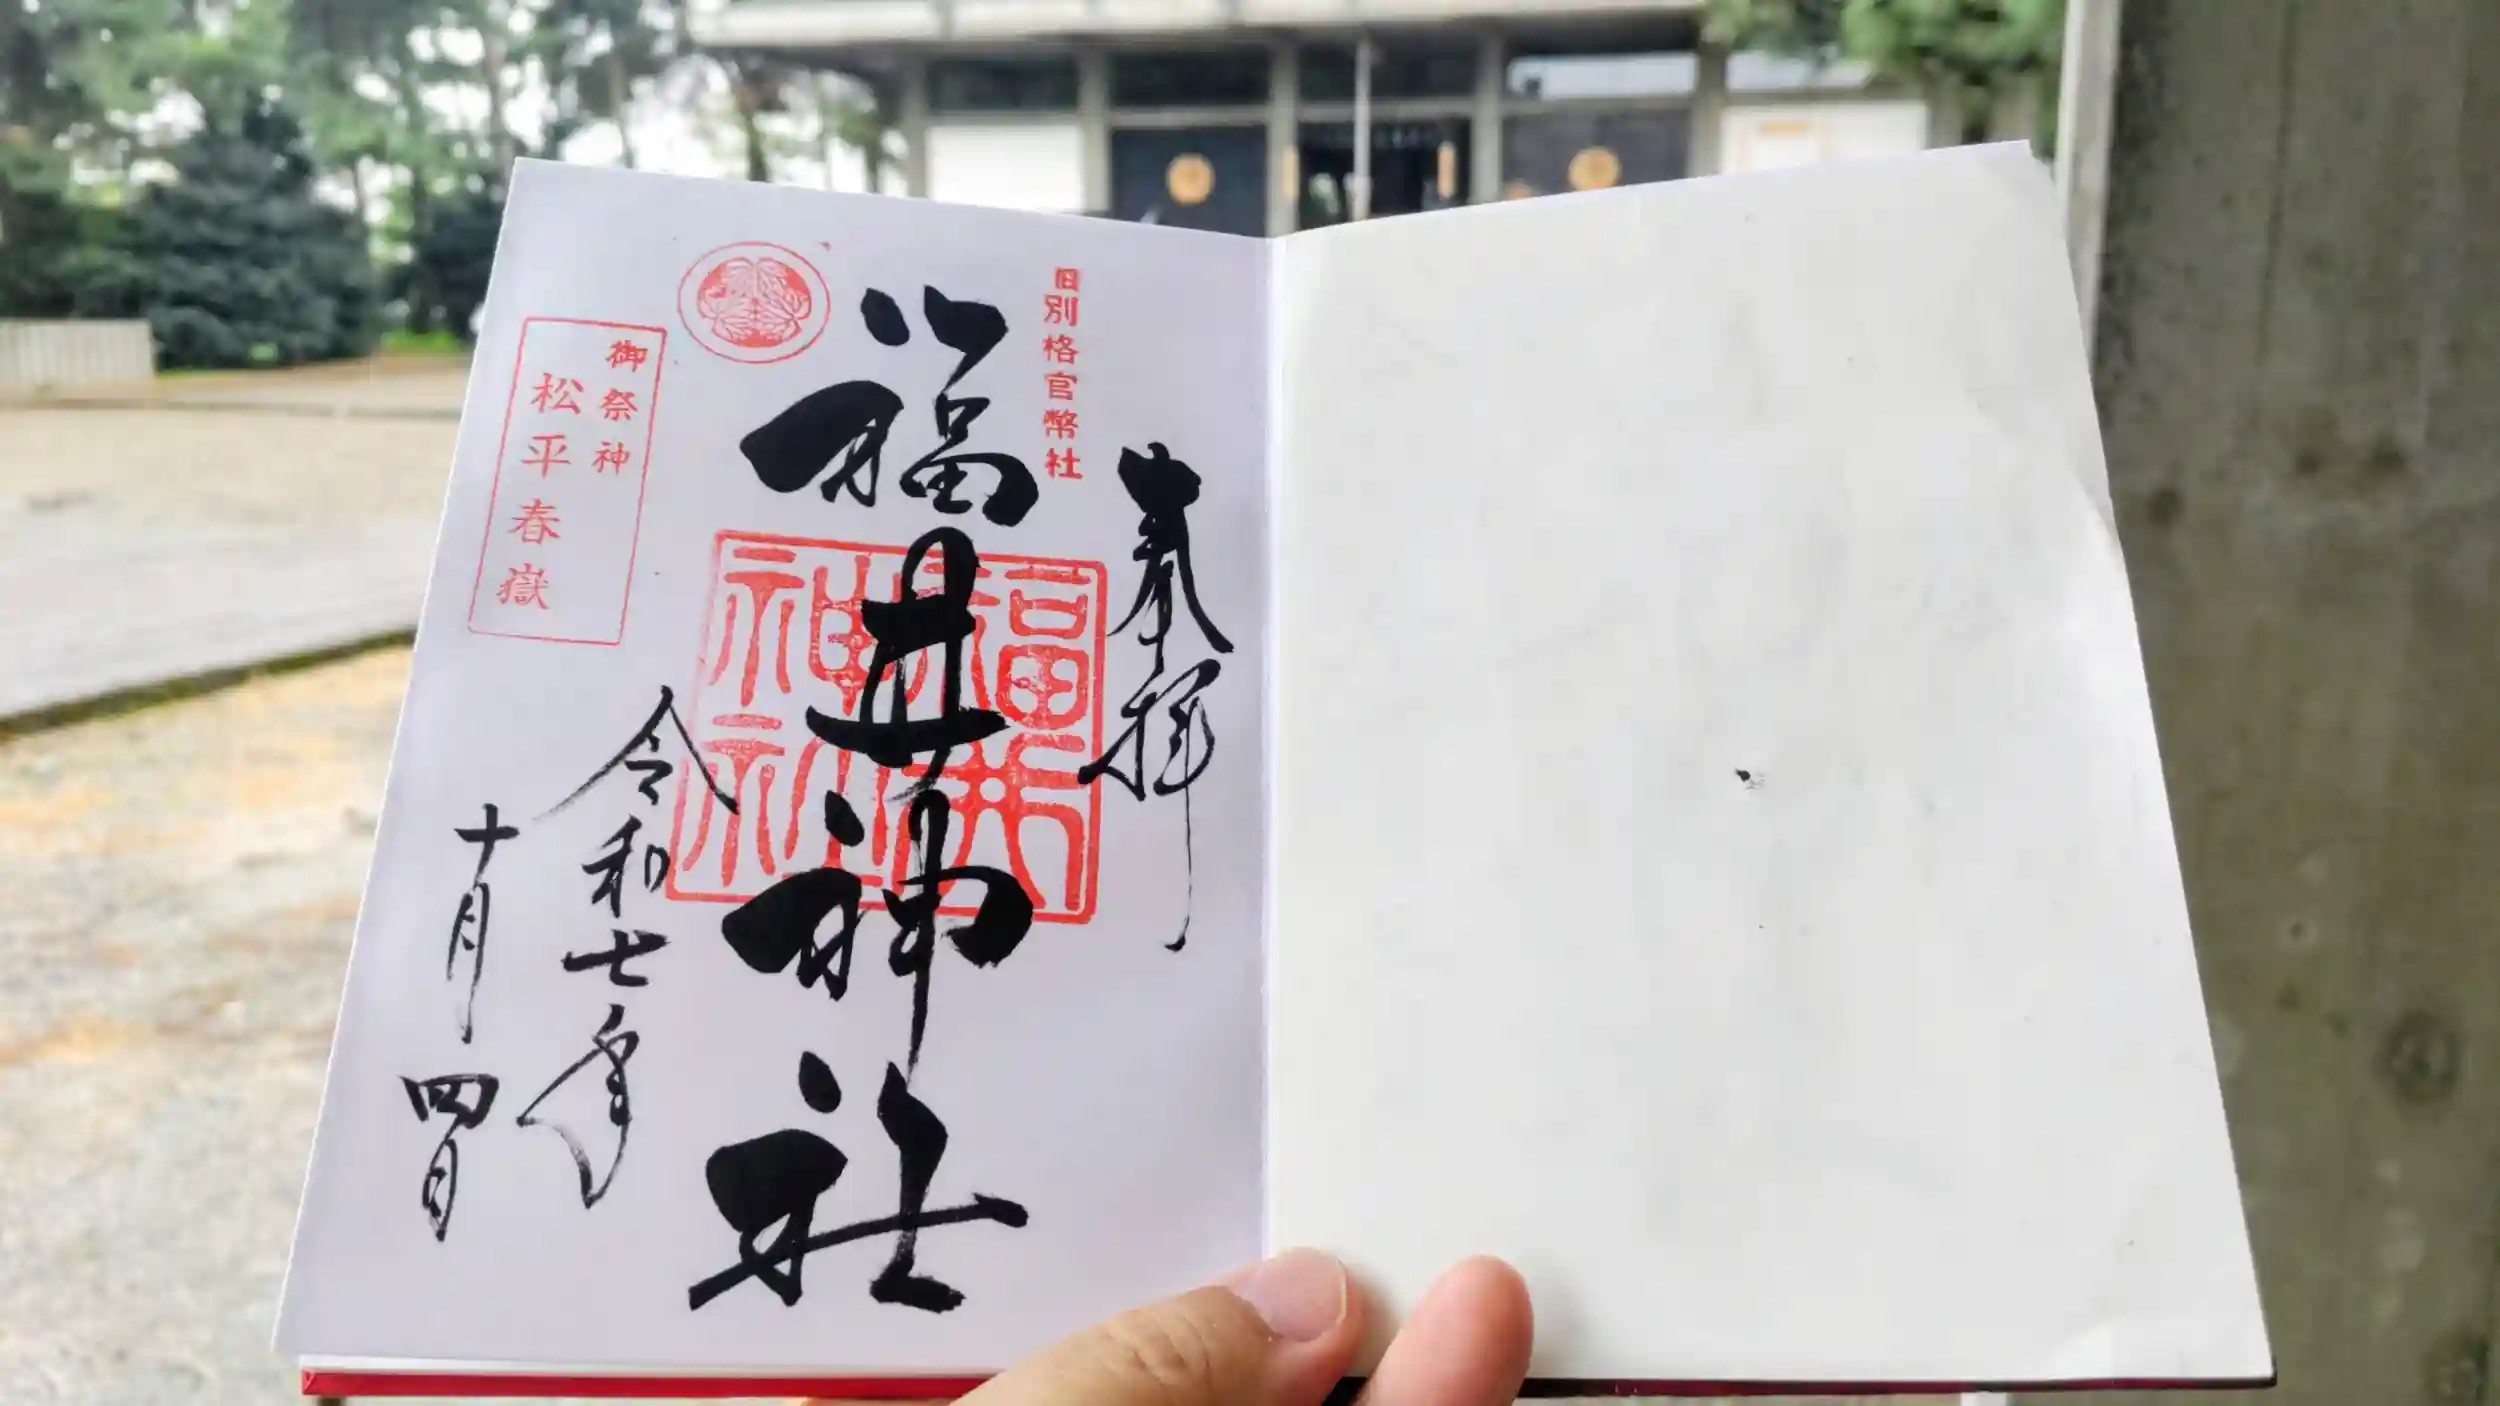 奉拝
旧別格官幣社
福井神社
福井
神社
御祭神
松平春嶽
令和七年
十月四日